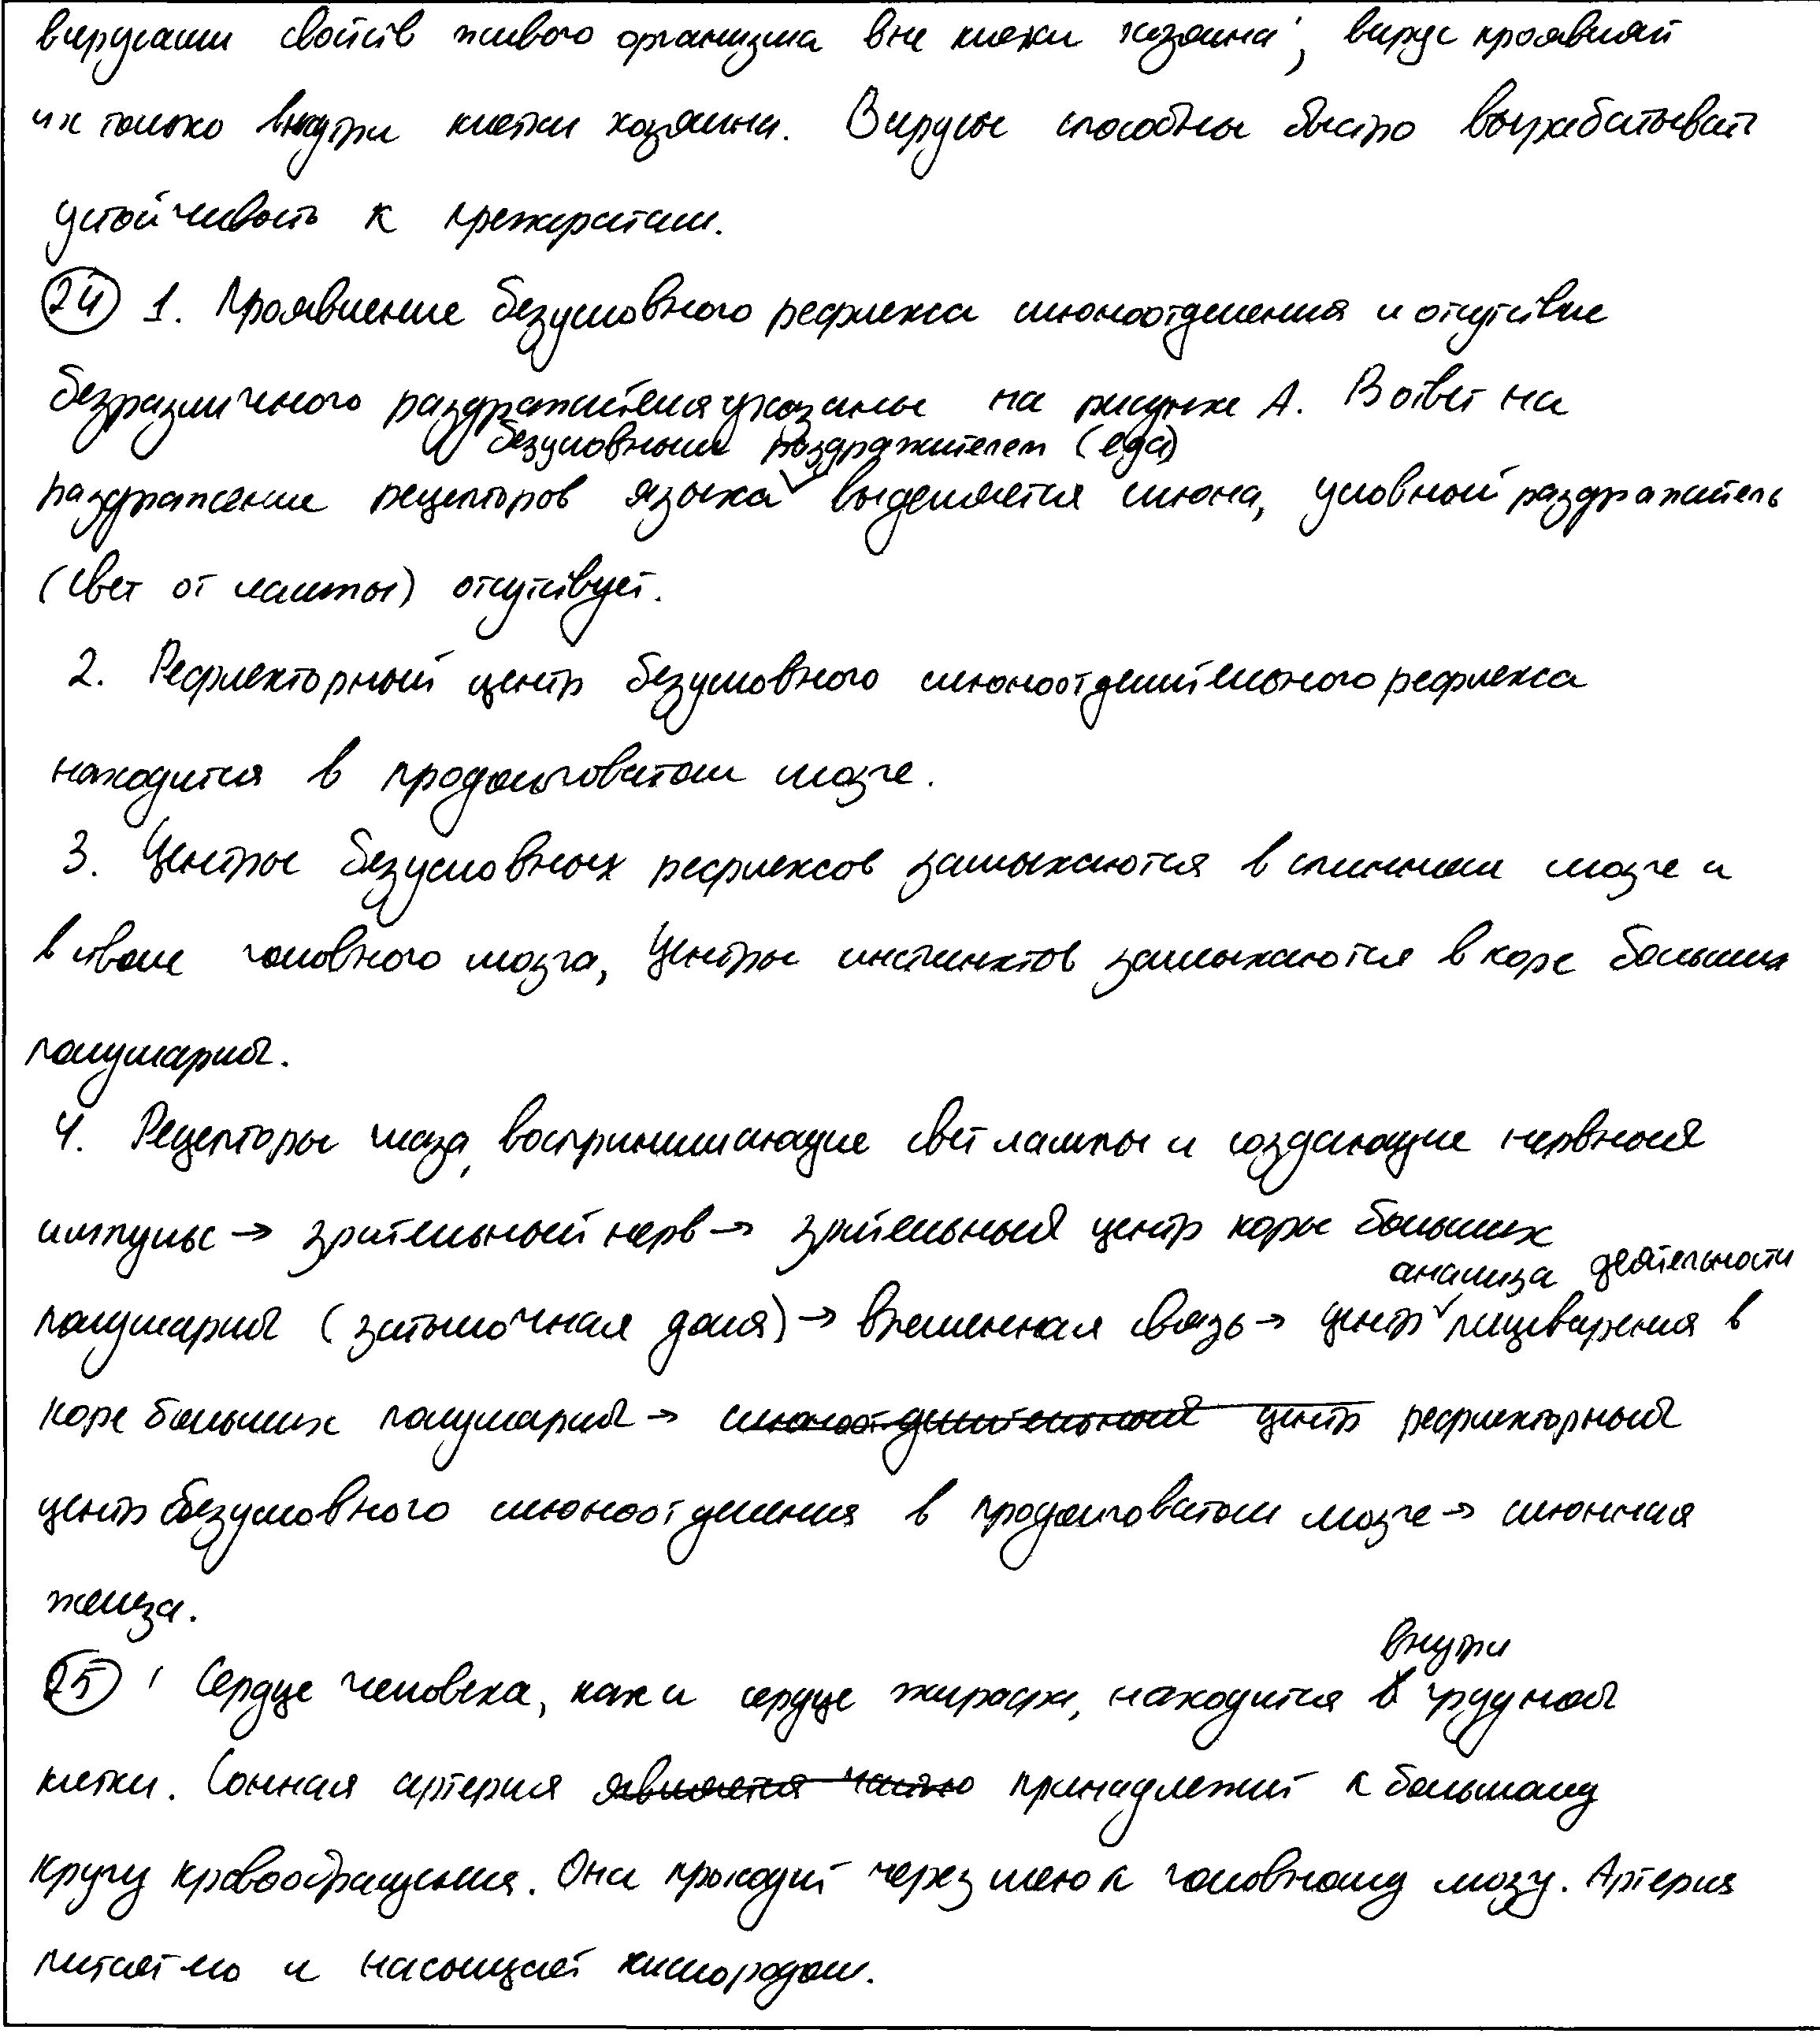 вирусами свойств живого организма вне клетки хозяина; вирус проявляет
их только внутри клетки хозяина. Вирусы способны быстро вырабатывать
устойчивость к препаратам.
24 1. Проявление безусловного рефлекса слюноотделения и отсутствие
безразличного раздражителя указаны на рисунке А. В ответ на
безусловным раздражителем (еда)
раздражение рецепторов языка выделяется слюна, условный раздражитель
(свет от лампы) отсутствует.
2. Рефлекторный центр безусловного слюноотделительного рефлекса
находится в продолговатом мозге.
3. Центры безусловных рефлексов замыкаются в спинном мозге и
в стволе головного мозга, центры инстинктов замыкаются в коре больших
полушарий.
4. Рецепторы глаза, воспринимающие свет лампы и создающие нервный
импульс → зрительный нерв → зрительный центр коры больших
анализа деятельности
полушарий (затылочная доля) → временная связь → центр пищеварения в
коре больших полушарий → слюноотделительный центр рефлекторный
центр безусловного слюноотделения в продолговатом мозге → слюнная
железа.
внутри
25 1 Сердце человека, как и сердце жирафа, находится в грудной
клетки. Сонная артерия является частью принадлежит к большому
кругу кровообращения. Она проходит через шею к головному мозгу. Артерия
питает его и насыщает кислородом.